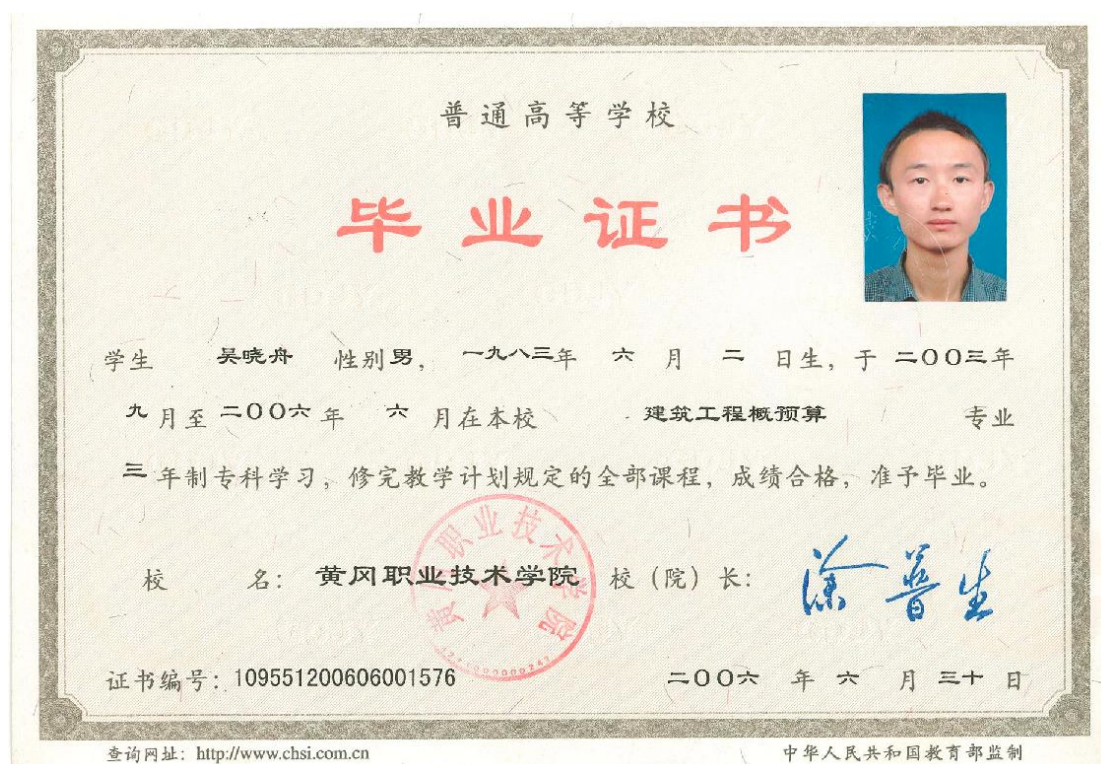 普通高等学校
毕业证书
学生 吴晓舟 性别 男, 一九八三年 六 月 二 日生, 于 二00三年
九 月至 二00六 年 六 月在本校 建筑工程概预算 专业
三 年制专科学习, 修完教学计划规定的全部课程, 成绩合格, 准予毕业。
黄冈职业技术学院
校 名: 黄冈职业技术学院 校(院)长: 涂普生
证书编号: 109551200606001576 二00六 年 六 月 三十 日
查询网址: http://www.chsi.com.cn 中华人民共和国教育部监制